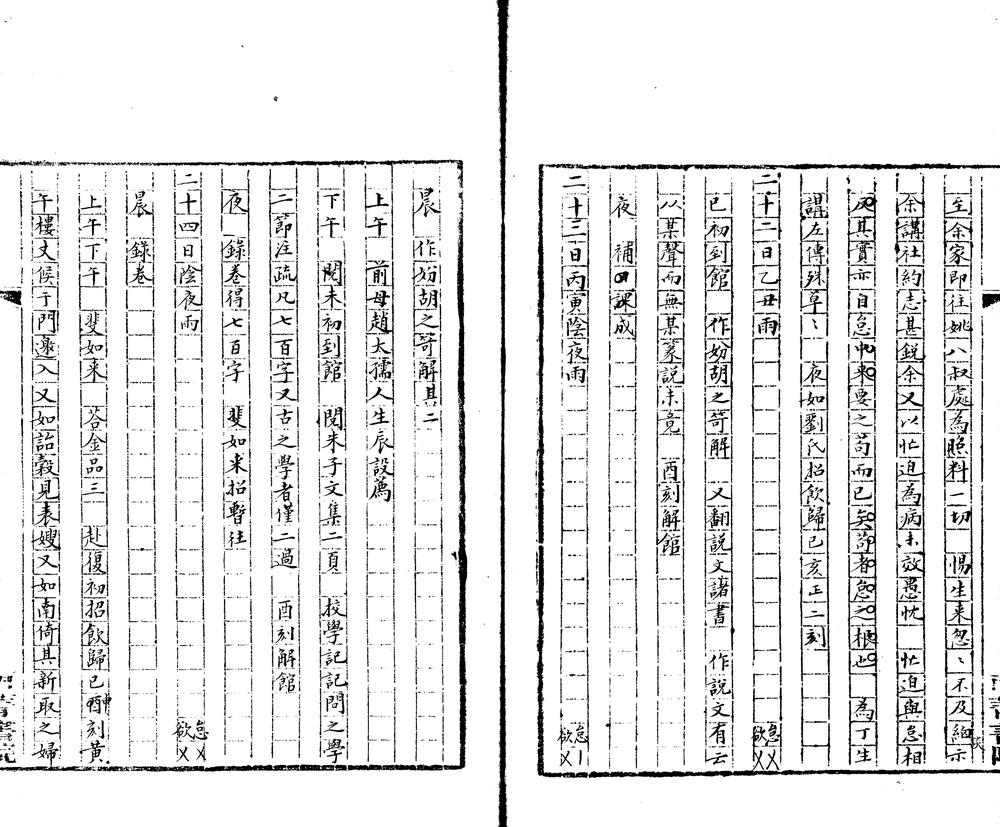 至余家即往姚八叔處為照料一切　惕生來忽〻不及細示
余講社約志甚銳余又以忙迫為病未效愚忱　忙迫與怠相
反其實亦自怠中來要之苟而已矣苟者怠之根也　為丁生
講左傳殊草〻　夜如劉氏招飲歸已亥正二刻
二十二日乙丑雨　怠××欲
巳初到館　作妢胡之笴解　又翻說文諸書　作說文有云
以某聲而無某篆說未竟　酉刻解館
夜　補日課成
二十三日丙寅陰夜雨　怠欲×
晨　作妢胡之笴解其二
上午　前母趙太孺人生辰設薦
下午　閱未初到館　閱朱子文集二頁　校學記記問之學
二節注疏凡七百字又古之學者僅二過　酉刻解館
夜　錄卷得七百字　斐如來招暫往
二十四日陰夜雨　怠×欲××
晨　錄卷
上午下午　斐如來　荅金品三　赴復初招飲歸已酉刻黃
午樓丈候于門邀入又如詒穀見表嫂又如南倚其新取之婦